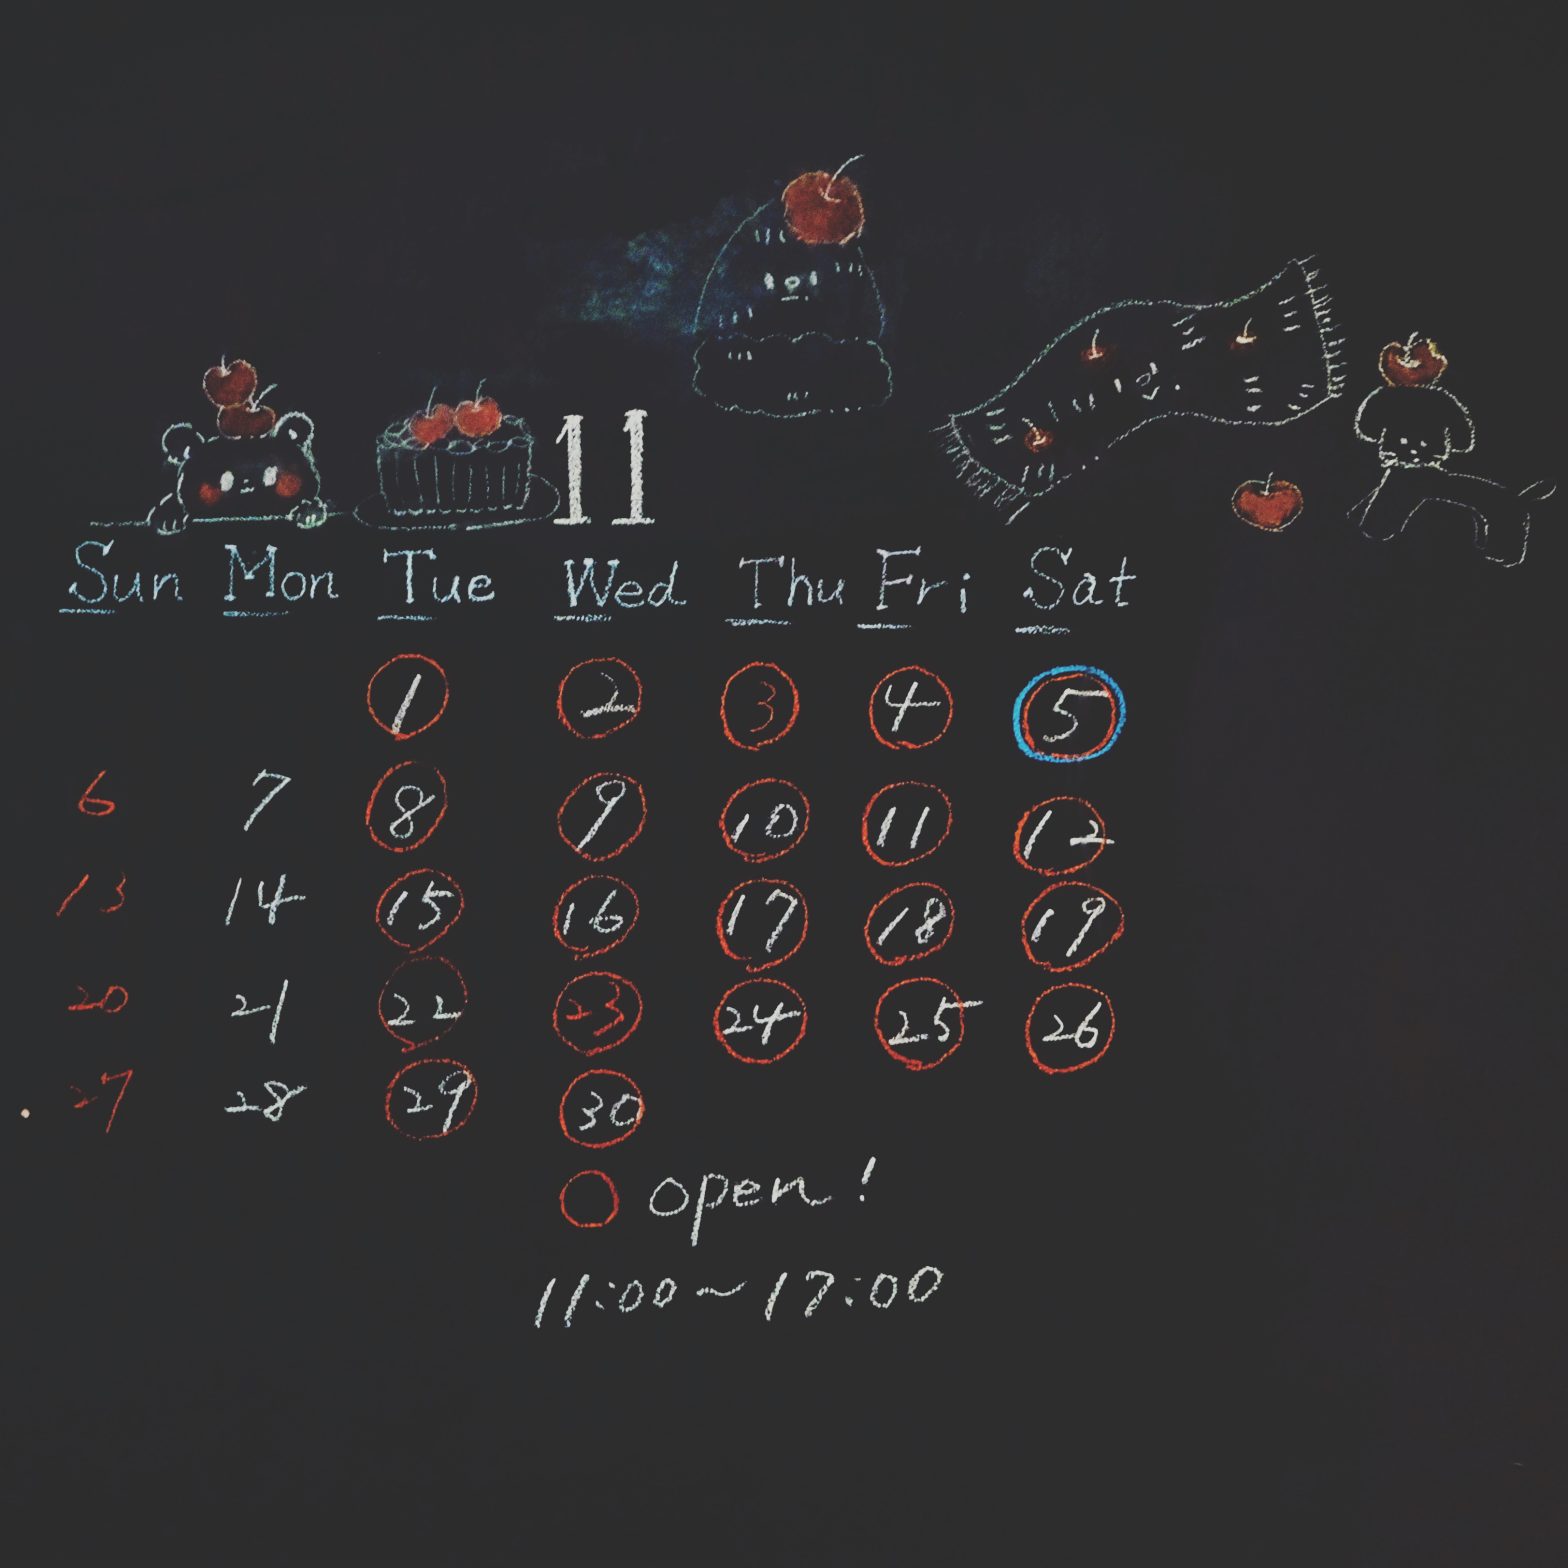 11
Sun Mon Tue Wed Thu Fri Sat
1 2 3 4 5
6 7 8 9 10 11 12
13 14 15 16 17 18 19
20 21 22 23 24 25 26
27 28 29 30
open!
11:00~17:00